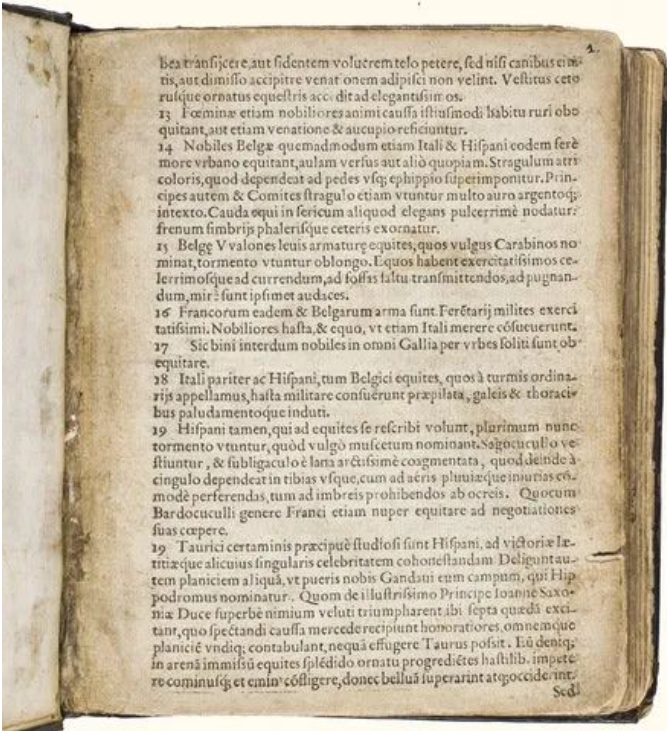 2.
bea transijcere, aut sidentem volucrem telo petere, sed nisi canibus cin-
tis, aut dimisso accipitre venationem adipisci non velint. Vestitus cete
rusque ornatus equestris accedit ad elegantissimos.
13 Fœminæ etiam nobiliores animi caussa istiusmodi habitu ruri obe
quitant, aut etiam venatione & aucupio reficiuntur.
14 Nobiles Belgæ quemadmodum etiam Itali & Hispani eodem ferè
more vrbano equitant, aulam versus aut aliò quopiam. Stragulum atri
coloris, quod dependeat ad pedes vsq; ephippio superimponitur. Prin-
cipes autem & Comites stragulo etiam vtuntur multo auro argentoq;
intexto. Cauda equi in sericum aliquod elegans pulcerrimè nodatur:
frenum fimbrijs phalerisque ceteris exornatur.
15 Belgę VValones leuis armaturę equites, quos vulgus Carabinos no
minat, tormento vtuntur oblongo. Equos habent exercitatissimos ce-
lerrimosque ad currendum, ad fossas saltu transmittendos, ad pugnan-
dum, mirè sunt ipsimet audaces.
16 Francorum eadem & Belgarum arma sunt. Ferẽtarij milites exerci
tatissimi. Nobiliores hasta, & equo, vt etiam Itali merere cõsueuerunt.
17 Sic bini interdum nobiles in omni Gallia per vrbes soliti sunt ob
equitare.
18 Itali pariter ac Hispani, tum Belgici equites, quos à turmis ordina-
rijs appellamus, hasta militare consuêrunt præpilata, galeis & thoraci-
bus paludamentoque induti.
19 Hispani tamen, qui ad equites se rescribi volunt, plurimum nunc
tormento vtuntur, quòd vulgò muscetum nominant. Sagocucullo ve
stiuntur, & subligaculo è lana arctissimè coagmentata, quod deinde à
cingulo dependeat in tibias vsque, cum ad aëris pluuiæque iniurias cõ-
modè perferendas, tum ad imbreis prohibendos ab ocreis. Quocum
Bardocuculli genere Franci etiam nuper equitare ad negotiationes
suas cœpere.
19 Taurici certaminis præcipuè studiosi sunt Hispani, ad victoriæ læ-
titiæque alicuius singularis celebritatem cohonestandam Deligunt au-
tem planiciem aliquã, vt pueris nobis Gandaui eum campum, qui Hip
podromus nominatur. Quom de illustrissimo Principe Ioanne Saxo-
niæ Duce superbè nimium veluti triumpharent ibi septa quædã exci-
tant, quo spectandi caussa mercede recipiunt honoratiores, omnemque
planiciẽ vndiq; contabulant, nequâ effugere Taurus possit. Eũ deniq;
in arenã immissũ equites splẽdido ornatu progrediẽtes hastilib. impete
re cominusq; et emin' cõfligere, donec belluã superarint atq; occiderint.
Sed